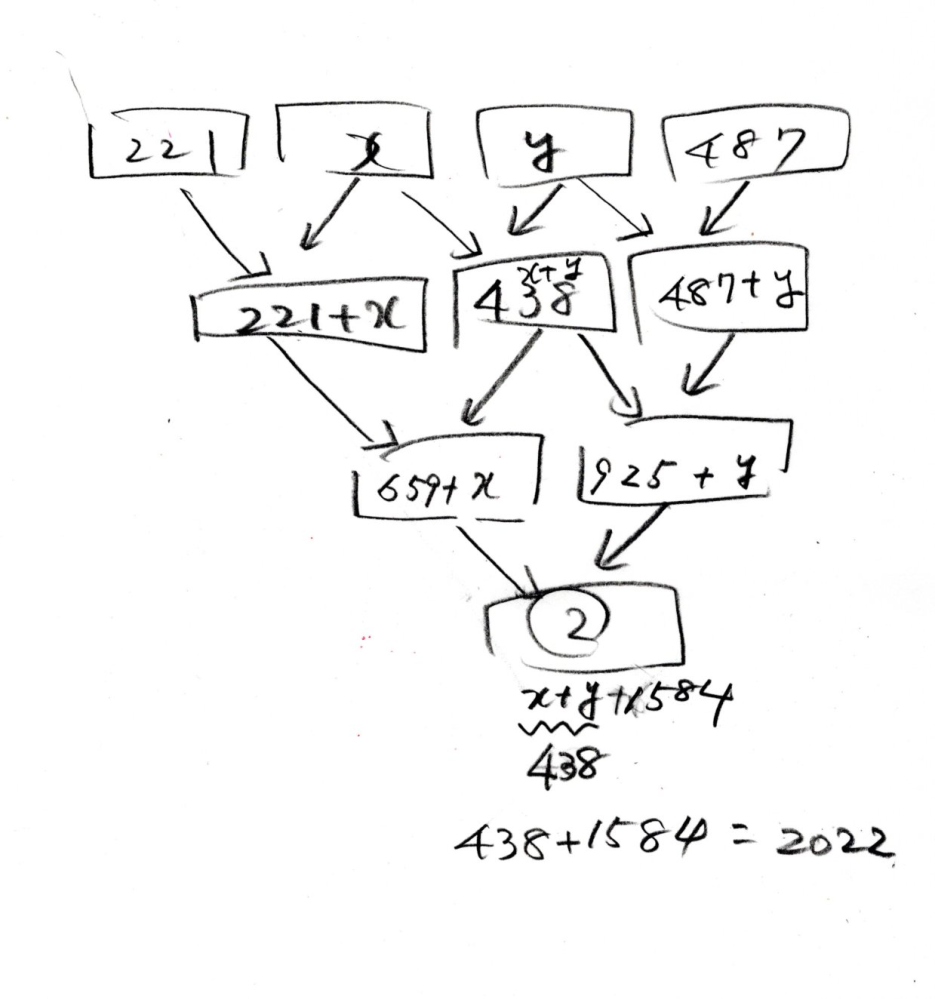 221 x y 487
221+x 438 487+y
x+y
659+x 925+y
2
x+y+1584
438
438+1584=2022